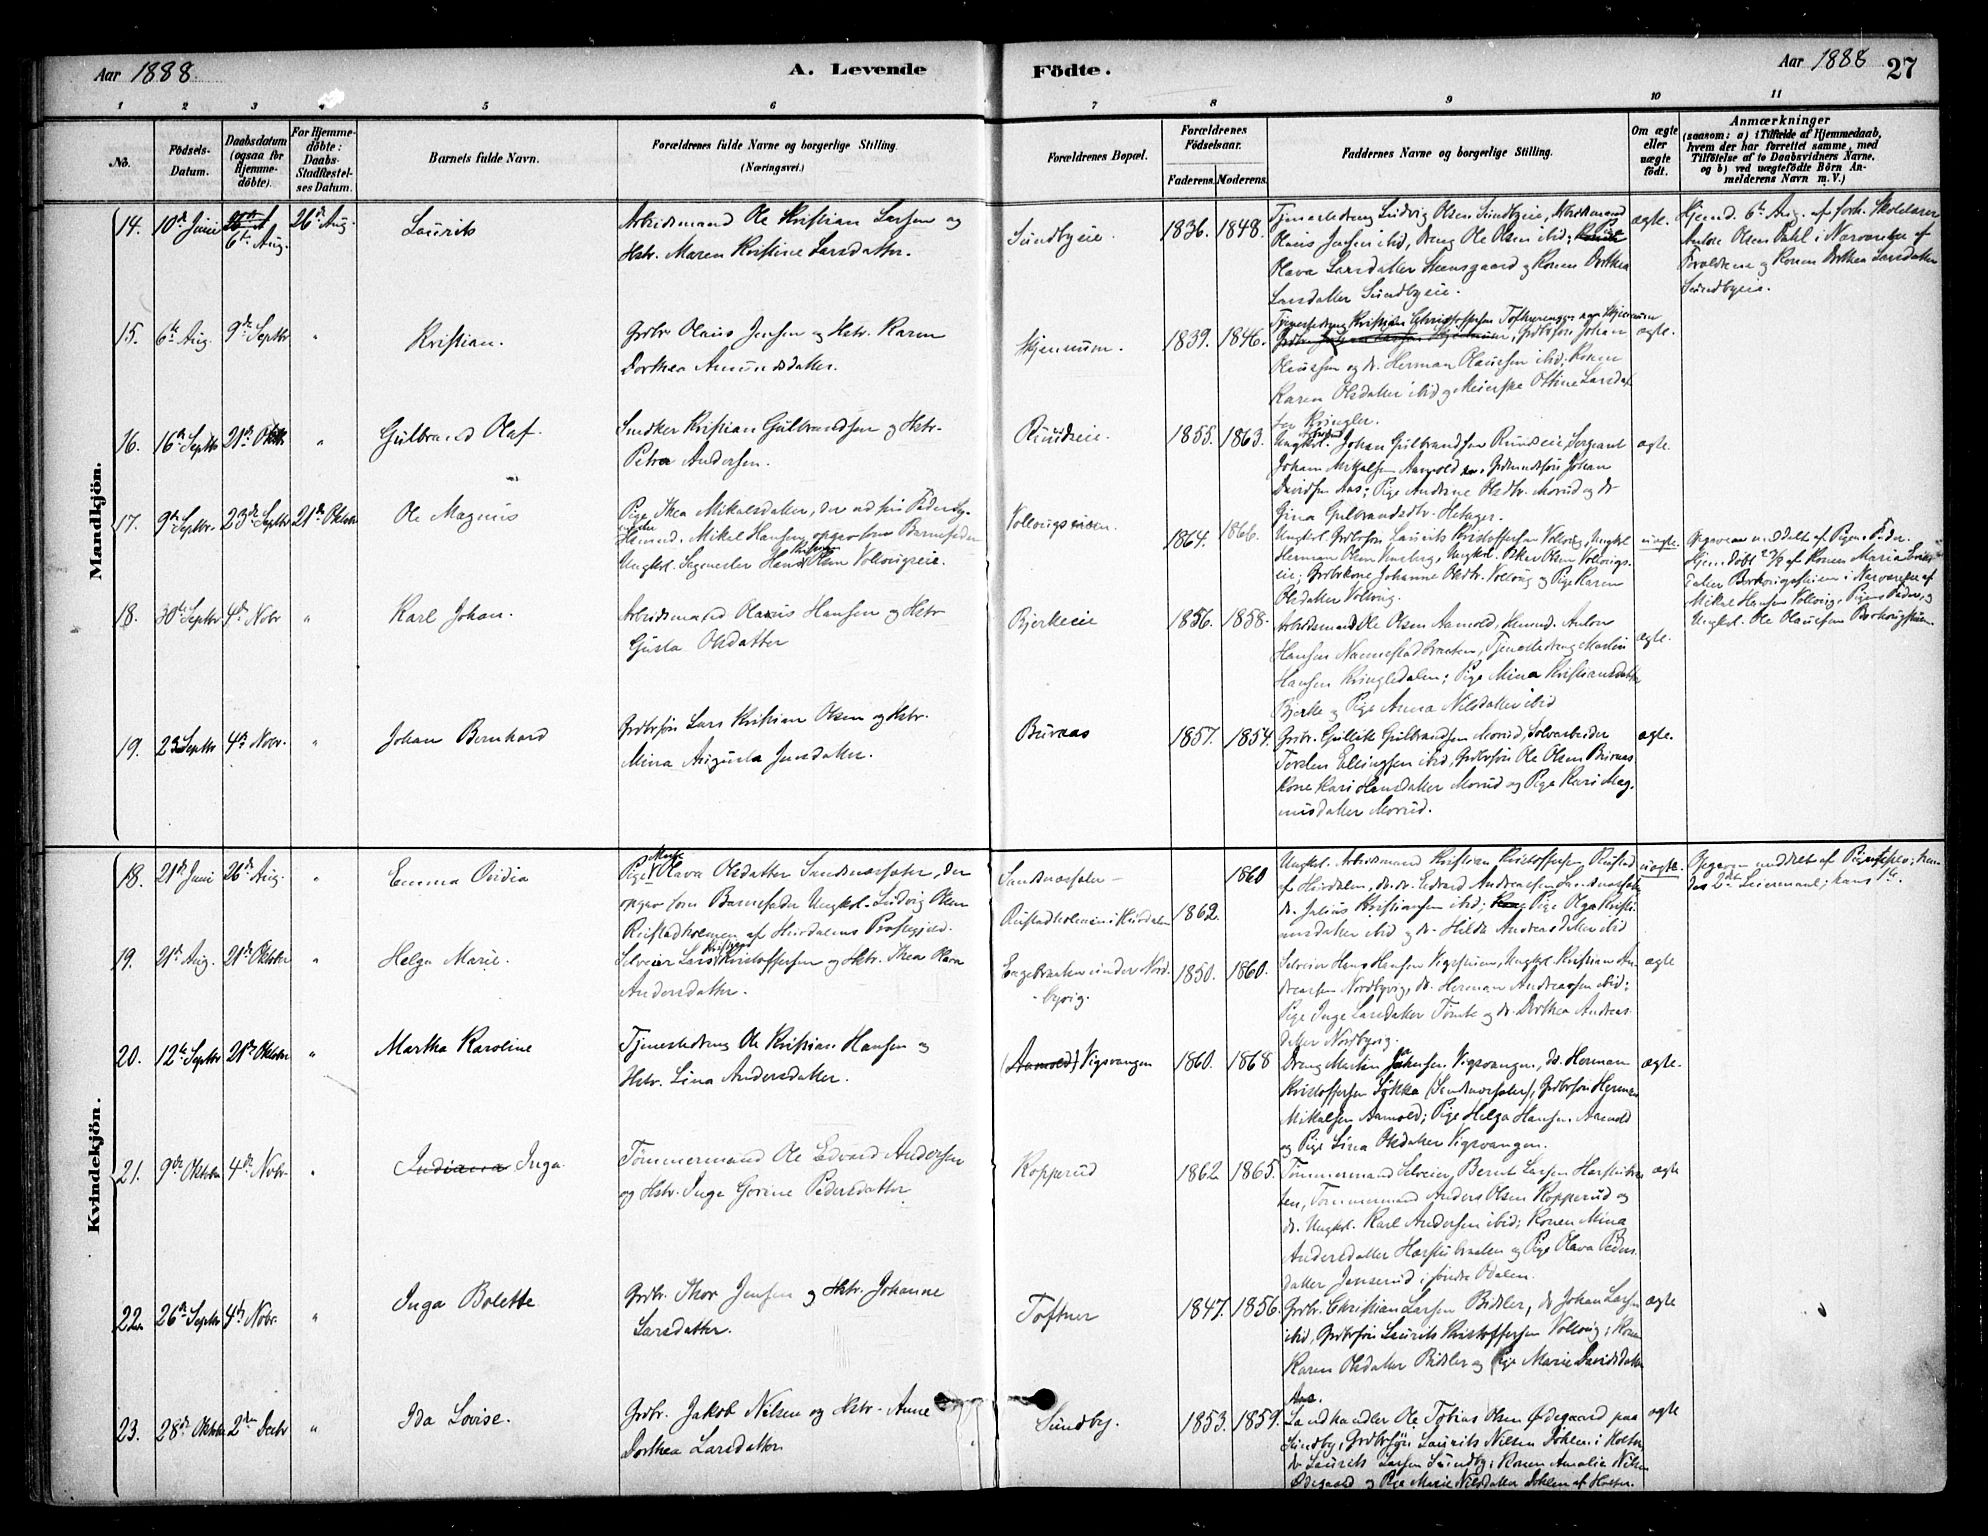 Aar 1888.
A. Levende
Födte.
Aar 1888
27
1 2 3 4 5 6 7 8 9 10 11
No.
Födsels-
Datum.
Daabsdatum
(ogsaa for
Hjemme-
döbte).
For Hjemme-
döbte:
Daabs-
Stadfæstel-
ses Datum.
Barnets fulde Navn.
Forældrenes fulde Navne og borgerlige Stilling.
(Næringsvei.)
Forældrenes Bopæl.
Forældrenes
Födselsaar.
Faderens. Moderens.
Faddernes Navne og borgerlige Stilling.
Om ægte
eller
uægte
födt.
Anmærkninger
(saasom: a) i Tilfælde af Hjemmedaab,
hvem der har forrettet samme, med
Tilföielse af to Daabsvidners Navne,
og b) ved uægtefödte Börn An-
melderens Navn m. V.)
Mandkjön.
14. 10de Juni
6te Aug.
26de Aug.
Laurits
Arbeidsmand Ole Kristian Larsen og
Hstr. Maren Kristine Larsdatter.
Sundbyeie.
1836. 1848.
Tjenestedreng Ludvig Olsen Sundbyeie, Arbeidsmand
Olaus Jensen ibid, Dreng Ole Olsen ibid; Pige
Olava Larsdatter Steensgaard og Konen Dorthea
Larsdatter Sundbyeie.
ægte.
Hjemd. 6te Aug. af forh. Skolelærer
Anton Olsen Dahl i Nærværelse af
Forældrene og Konen Dorthea Larsdatter
Sundbyeie.
15. 6te Aug. 9de Septbr "
Kristian.
Grdbr. Olaus Jensen og Hstr. Karen
Dorthea Amundsdatter.
Skjennum.
1839. 1846.
Tjenestedreng Kristian Christoffersen
Grdbrsön Johan
Olaussen og do. Herman Olaussen ibid; Konen
Karen Olsdatter ibid og Meierske Ottine Larsdat-
ter Kringler.
ægte.
16. 16de Septbr 21de Oktbr. "
Gulbrand Olaf.
Snedker Kristian Gulbrandsen og Hstr.
Petra Andersen.
Ruudseie.
1855. 1863.
Ungkl. Johan Gulbrandsen Rundseie, Sergeant
Johan Mikalsen Aamold, Grdmandssön Johan
Davidsen Aas; Pige Andrine Olsdtr. Morud og do
Gina Gulbrandsdtr. Hetager.
ægte.
17. 9de Septbr. 23de Septbr 21de Oktober
Ole Magnus
Pige Thea Mikalsdatter, der ved sin Fader
Mikal Hansen opgav som Barnefader
Ungkl. Sagmester Hans Kristian Olsen Vollaugseie.
1864. 1866.
Ungkl. Grdbrsön Laurits Kristoffersen Vollaug, Ungkl
Herman Olsen, Ungkl. Peter Olsen Vollaugs-
eie; Grdbrkone Johanne Olsdtr. Vollaug og Pige Karen
Olsdatter Vollaug.
uægte.
Opgaven meddelt af Pigens Fader.
Hjemdöbt af Konen Maria Lars-
datter i Nærværelse af
Mikal Hansen Vollaug, Pigens Fader, og
Ungkl. Ole Olaussen
18. 30te Septbr 4de Novbr "
Karl Johan.
Arbeidsmand Olaus Hansen og Hstr
Gusta Olsdatter
Bjerkeeie
1856. 1858.
Arbeidsmand Ole Olsen Aamold, Anton
Hansen Nannestadbraaten, Tjenestedreng Martin
Hansen Kringledalen; Pige Mina Kristiansdatter
Bjerke og Pige Anna Nilsdatter ibid
ægte.
19. 23 Septbr 4de Novbr. "
Johan Bernhard
Grdbrsön Lars Kristian Olsen og Hstr.
Mina Augusta Jensdatter.
Buraas
1857. 1854.
Grdbr. Gullik Gulbrandsen Morud, Selvarbeider
Torsten Ellingsen ibid, Grdbrsön Ole Olsen Buraas,
Kone Kari Hansdatter Morud og Pige Kari Mag-
nusdatter Morud.
ægte.
Kvindekjön.
18. 21de Juni 26de Aug. "
Emma Ovidia
Pige Marte Olava Olsdatter Sandnæssæter, der
opgav som Barnefader Ungkl. Ludvig Olsen
Rustadholmen af Hurdalens Præstegjeld.
Sandnæssæter -
Rustadholmen i Hurdalen
1862. 1860
Ungkl. Arbeidsmand Kristian Kristoffersen Rustad
af Hurdalen, do. do. Edvard Andreassen Sandnæssæter
do. Julius Kristiansen ibid; Pige Olga Kristi-
ansdatter ibid og do. Hilda Andreasdatter ibid
uægte.
Opgaven meddelt af Pigen selv; hen-
des 2det Leiermaal; hans 1te.
19. 21de Aug. 21de Oktober "
Helga Marie.
Selveier Lars Kristian Kristoffersen og Hstr. Thea Olava
Andersdatter.
Engebraaten under Nord-
byvig.
1850. 1860.
Selveier Hans Hansen Vigstuen, Ungkl. Kristian An-
dreassen Nordbyvig, do. Herman Andreassen ibid;
Pige Inga Larsdatter Tömte og do. Dorthea Andreas-
datter Nordbyvig.
ægte
20. 12te Septbr 21de Oktober "
Martha Karoline
Tjenestedreng Ole Kristian Hansen og
Hstr. Lina Andersdatter.
(Aamold) Vigsvangen
1860. 1868
Dreng Martin Johnsen Vigsvangen, do. Herman
Kristoffersen Lökka (Sandnæssæter), Grdbrsön Herman
Mikalsen Aamold; Pige Helga Hansen Aamold
og Pige Lina Olsdatter Vigsvangen.
ægte.
21. 9de Oktober 4de Novbr "
Indianna Inga.
Tömmermand Ole Edvard Andersen
og Hstr. Inga Gorine Pedersdatter
Kopperud
1862 1865.
Tömmermand Selveier Bernt Larsen Hærstubraa-
ten, Tömmermand Anders Olsen Kopperud og
do. Ungkl. Karl Andersen ibid; Konen Mina
Andersdatter Hærstubraaten og Pige Olava Peders-
datter Janserud i söndre Odalen.
ægte
22. 26de Septbr 4de Novbr. "
Inga Bolette
Grdbr. Thor Jensen og Hstr. Johanne
Larsdatter.
Toftner
1847. 1856.
Grdbr. Christian Larsen Bidler, do Johan Larsen
ibid, Grdbrsön Laurits Kristoffersen Vollaug; Konen
Karen Olsdatter Bidler og Pige Marie Davidsdatter
Aas.
ægte
23. 28de Oktober 2den Decbr "
Ida Lovise.
Grdbr. Jakob Nilsen og Hstr. Anne
Dorthea Larsdatter
Sundby.
1853. 1859.
Landhandler Ole Tobias Olsen Ödegaard paa
Sundby, Grdbrsön Laurits Nilsen Döhlen i Holter,
do Laurits Larsen Sundby; Konen Amalie Nilsen
Ödegaard og Pige Marie Nilsdatter Döhlen af Holter.
ægte